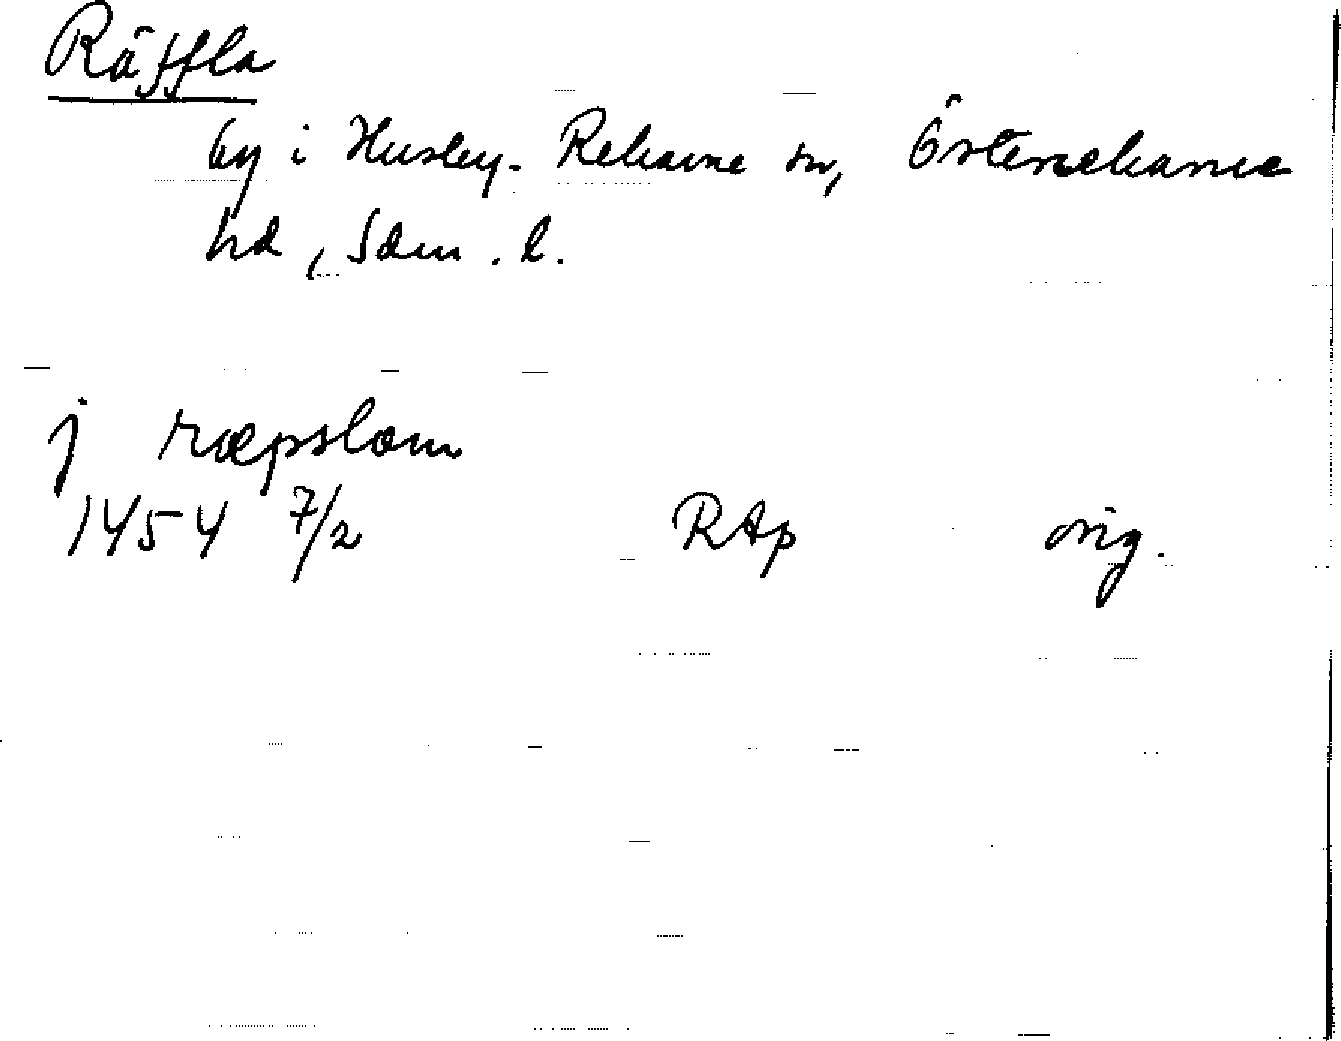 Räffla
by i Husby-Rekarne sn, Österrekarne
hd, Söm. l.
j ræpslom
1454 7/2 RAp orig.